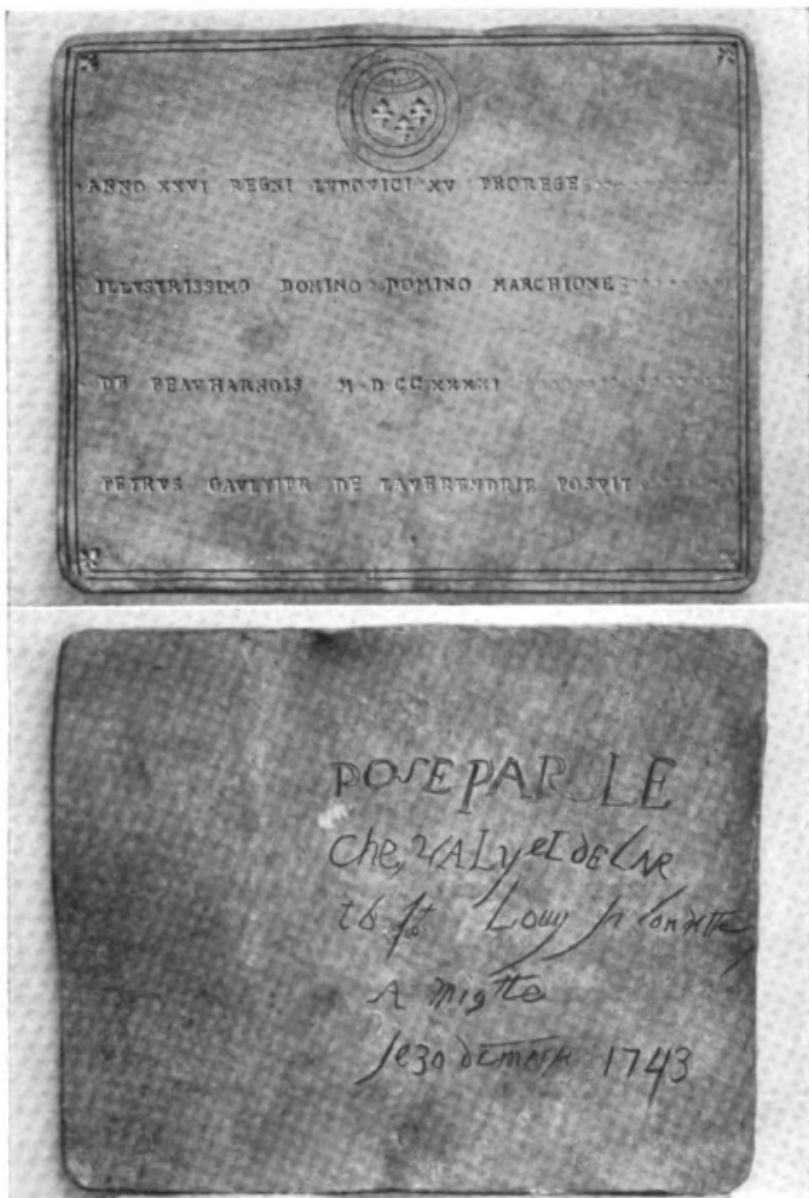 ANNO XXVI REGNI LVDOVICI XV PROREGE
ILLVSTRISSIMO DOMINO DOMINO MARCHIONE
DE BEAVHARNOIS M D CC XXXXI
PETRVS GAVLTIER DE LAVERENDRIE POSVIT
POSE PAR LE
Che,vALyet DE LAR
t b st Louy la Londette
A miotte
le 30 DE MARS 1743